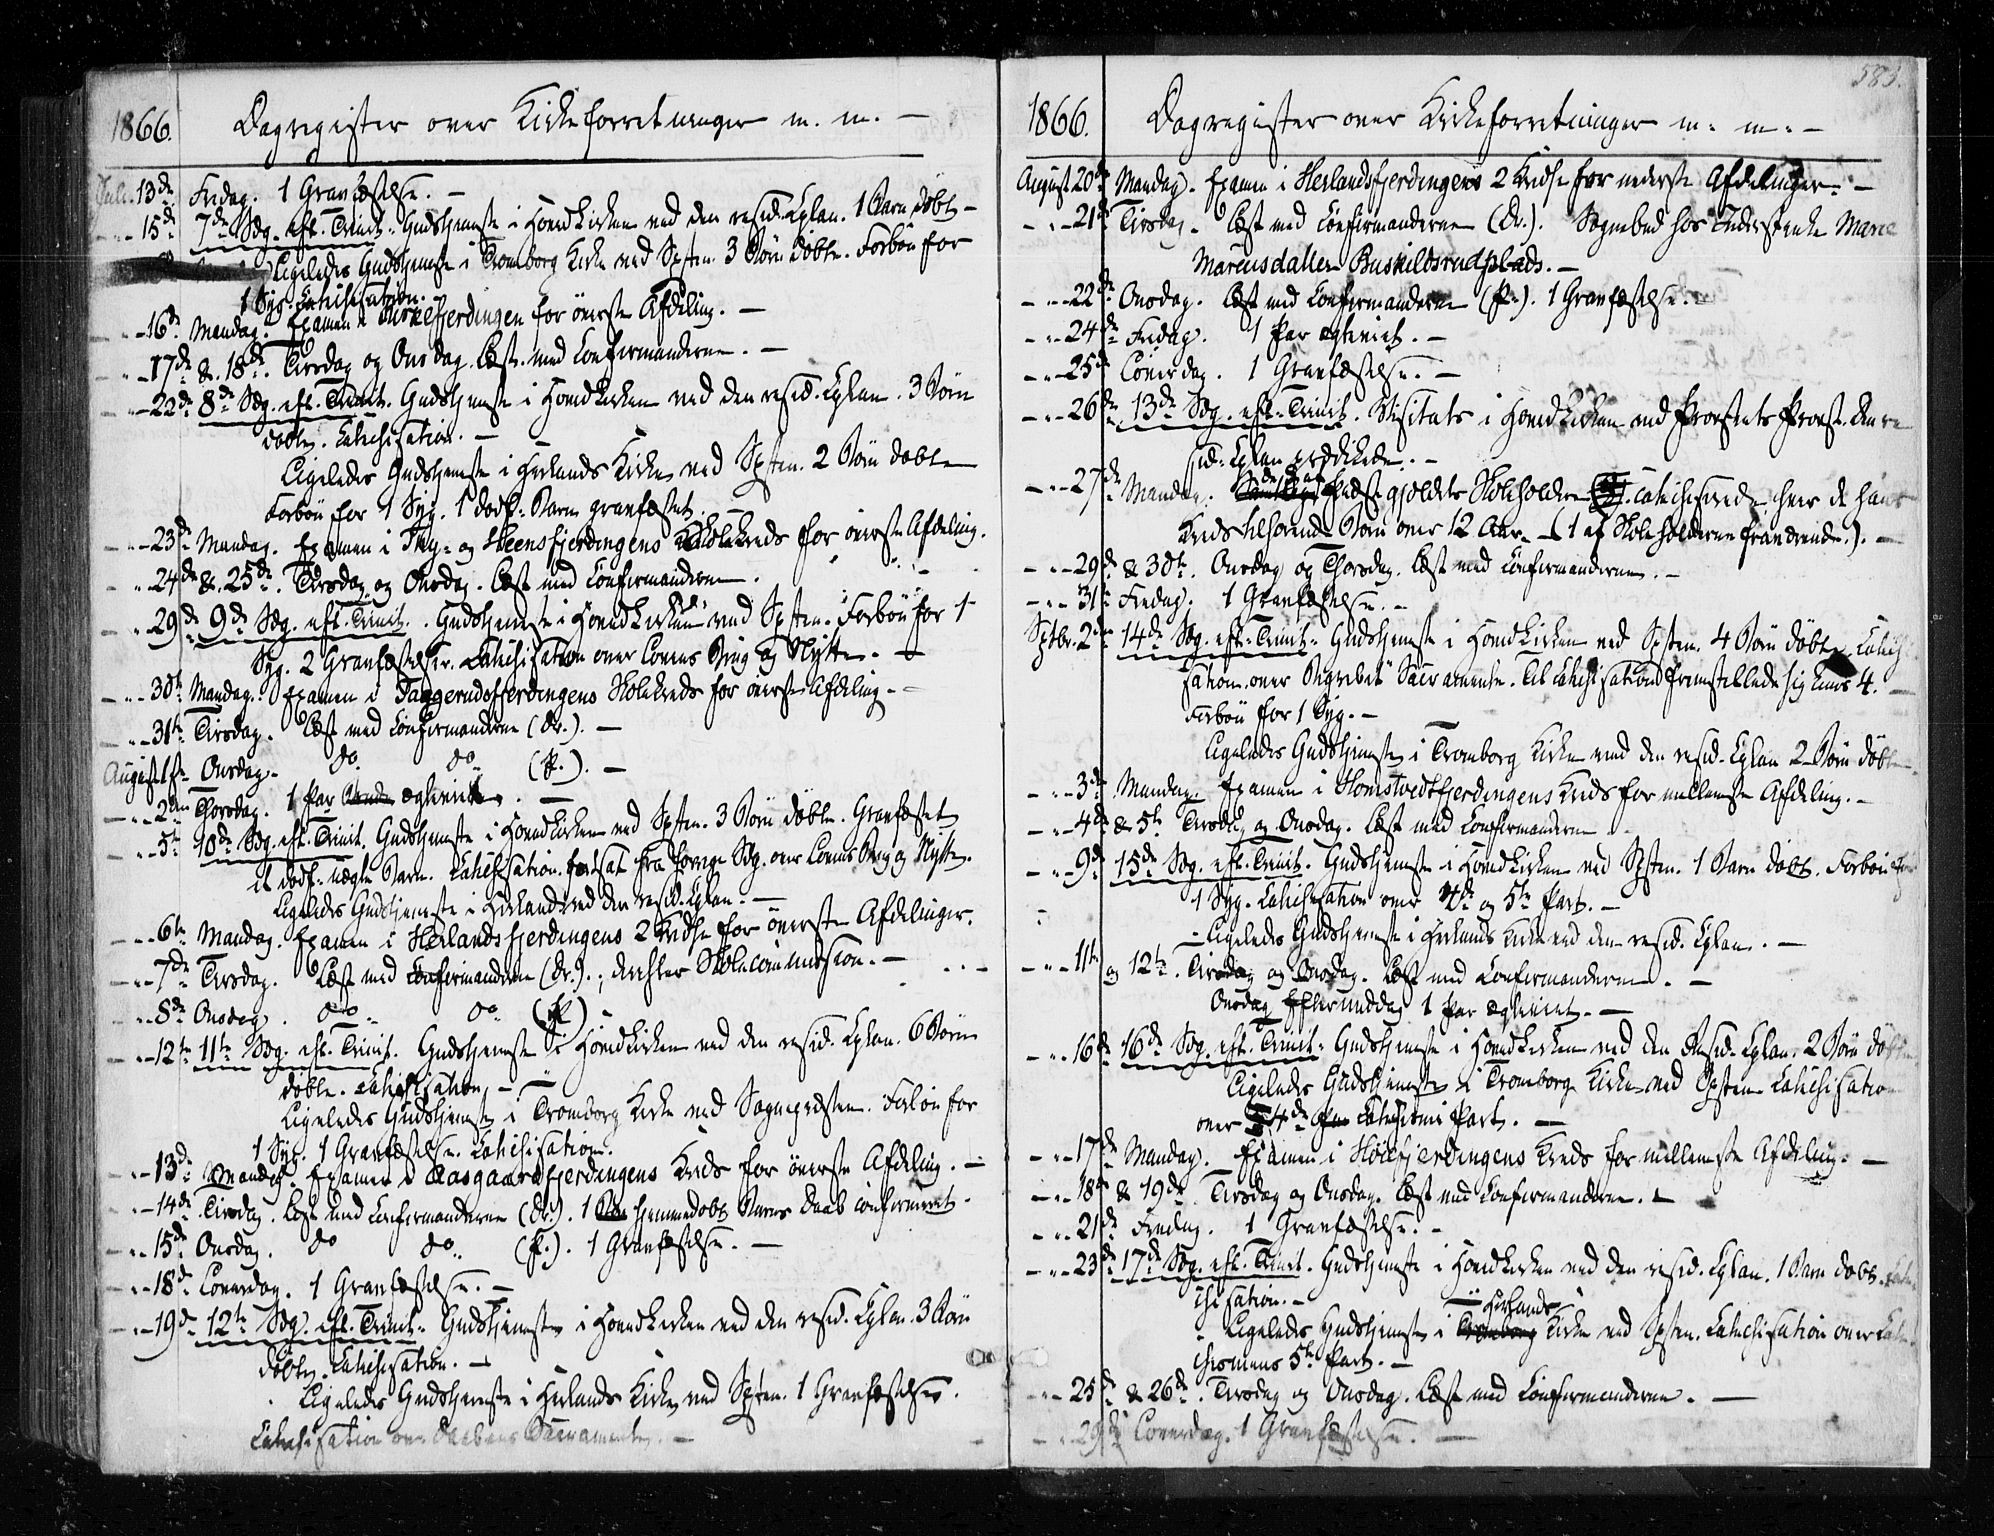 1866. Dagregister over Kirkeforretninger m. m. –
Juli 13de Fredag. 1 Gravfæstelse. –
– „ – 15de 7de Sdg. eft. Trinit. Gudstjeneste i Hovedkirken ved den resid. Cplan. 1 Barn døbt –
Ligeledes Gudstjeneste i Tromborg Kirke ved Spsten. 3 Børn døbte. Forbøn for
1 Syg. Catechisation.
– „ – 16de Mandag. Examen i Kirkefjerdingen for øverste Afdeling. –
– „ – 17de & 18de. Tirsdag og Onsdag. Læst med Confirmanderne. –
– „ – 22de 8de Sdg. eft. Trinit. Gudstjeneste i Hovedkirken ved den resid. Cplan. 3 Børn
døbte. Catechisation. –
Ligeledes Gudstjeneste i Herlands Kirke ved Spsten. 2 Børn døbte
Forbøn for 1 Syg. 1 dødf. Barn gravfæstet.
– „ – 23de Mandag. Examen i Thy- og Heensfjerdingens Skolekreds for øverste Afdeling.
– „ – 24de & 25de. Tirsdag og Onsdag. Læst med Confirmanderne.
– „ – 29de 9de Sdg. eft. Trinit. Gudstjeneste i Hovedkirken ved Spsten. Forbøn for 1
Syg. 2 Gravfæstelser. Catechisation over Lovens Brug og Nytte. –
– „ – 30te Mandag. Examen i Taggerudsfjerdingens Skolekreds for øverste Afdeling. –
– „ – 31te Tirsdag. Læst med Confirmanderne (Dr.). –
August 1ste Onsdag. do. do. (P.). –
– „ – 2den Thorsdag. 1 Par ægteviet. –
– „ – 5te 10de Sdg. eft. Trinit. Gudstjeneste i Hovedkirken ved Spsten. 3 Børn døbte. Gravfæstet
et dødf. uægte Barn. Catechisation fortsat fra forrige Sdg. over Lovens Brug og Nytte.
Ligeledes Gudstjeneste i Herland ved den resid. Cplan. –
– „ – 6te Mandag. Examen i Herlandsfjerdingens 2 Kredse for øverste Afdelinger.
– „ – 7de Tirsdag. Læst med Confirmanderne (Dr.).; derefter Skolecommission. –
– „ – 8de Onsdag. do. do. (P.)
– „ – 12te 11te Sdg. eft. Trinit. Gudstjeneste i Hovedkirken ved den resid. Cplan. 6 Børn
døbte. Catechisation. –
Ligeledes Gudstjeneste i Tromborg Kirke ved Sognepræsten. Forbøn for
1 Syg. 1 Gravfæstelse. Catechisation.
– „ – 13de Mandag. Examen i Aasgaardsfjerdingens Kreds for øverste Afdeling. –
– „ – 14de Tirsdag. Læst med Confirmanderne (Dr.). 1 hjemmedøbt Barns Daab confirmeret.
– „ – 15de Onsdag. do do. (P.). 1 Gravfæstelse. –
– „ – 18de Løverdag. 1 Gravfæstelse. –
– „ – 19de 12te Sdg. eft. Trinit. Gudstjeneste i Hovedkirken ved den resid. Cplan. 3 Børn
døbte. Catechisation. –
Ligeledes Gudstjeneste i Herlands Kirke ved Spsten. 1 Gravfæstelse.
Catechisation over Daabens Sacramente. –
583.
1866. Dagregister over Kirkeforretninger m. m. –
August 20de Mandag. Examen i Herlandsfjerdingens 2 Kredse for nederste Afdelinger. –
– „ – 21de Tirsdag. Læst med Confirmanderne (Dr.). Sognebud hos Inderstenke Marie
Marcusdatter Buskildsrudplads. –
– „ – 22de Onsdag. Læst med Confirmanderne (P.). 1 Gravfæstelse.
– „ – 24de Fredag. 1 Par ægteviet. –
– „ – 25de Løverdag. 1 Gravfæstelse. –
– „ – 26de 13de Sdg. eft. Trinit. Visitats i Hovedkirken ved Provstiets Provst. Den re
sid. Cplan prædikede. –
– „ – 27de Mandag. Præstegjeldets Skoleholdere catechiserede hver de hans
Kreds tilhørende Børn over 12 Aar. – (1 af Skoleholderne fraværende.). –
– „ – 29de & 30te. Onsdag og Thorsdag. Læst med Confirmanderne. –
– „ – 31te Fredag. 1 Gravfæstelse. –
Septbr. 2den 14de Sdg. eft. Trinit. Gudstjeneste i Hovedkirken ved Spsten. 4 Børn døbte. Catechi
sation over Begrebet Sacramente. Til Catechisation fremstillede sig kuns 4. –
Forbøn for 1 Syg. –
Ligeledes Gudstjeneste i Tromborg Kirke ved den resid. Cplan 2 Børn døbte.
– „ – 3die Mandag. Examen i Homstvedtfjerdingens Kreds for mellemste Afdeling. –
– „ – 4de & 5te Tirsdag og Onsdag. Læst med Confirmanderne
– „ – 9de 15de Sdg. eft. Trinit. Gudstjeneste i Hovedkirken ved Spsten. 1 Barn døbt. Forbøn for
1 Syg. Catechisation over 4de og 5te Part. –
– Ligeledes Gudstjeneste i Herlands Kirke ved den resid. Cplan. –
– „ – 11te og 12te. Tirsdag og Onsdag. Læst med Confirmanderne. –
Onsdag Eftermiddag 1 Par ægteviet. –
– „ – 16de 16de Sdg. eft. Trinit. Gudstjeneste i Hovedkirken ved den Resid. Cplan. 2 Børn døbte.
Ligeledes Gudstjeneste i Tromborg Kirke ved Spsten Catechisation
over 4de Catechismi Part. –
– „ – 17de Mandag. Examen i Høiefjerdingens Kreds for mellemste Afdeling. –
– „ – 18de & 19de Tirsdag og Onsdag. Læst med Confirmanderne. –
– „ – 21de Fredag. 1 Gravfæstelse. –
– „ – 23de 17de Sdg. eft. Trinit. Gudstjeneste i Hovedkirken ved den resid. Cplan. 1 Barn døbt. Cate
chisation. –
– Ligeledes Gudstjeneste i Tromborg Herlands Kirke ved Spsten. Catechisation over Cate
chismens 5te Part. –
– „ – 25de & 26de. Tirsdag og Onsdag. Læst med Confirmanderne. –
– „ – 29de Løverdag. 1 Gravfæstelse. –